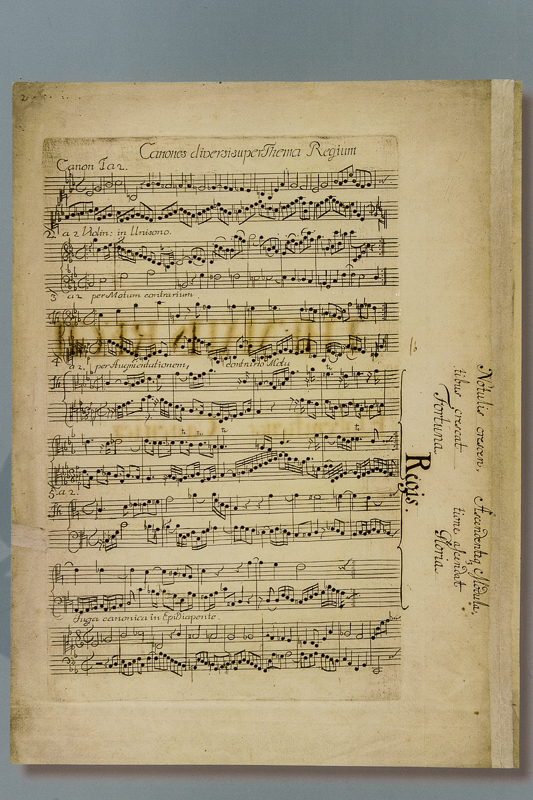 Canones diversi super Thema Regium
Canon 1. a 2.
2. a 2 Violin: in Unisono.
3. a 2 per Motum contrarium
4. a 2. per Augmentationem, contrario Motu
5. a 2.
Fuga canonica in Epidiapente.
Notulis crescen,
tibus crescat
Fortuna
Regis.
Ascendenteq Modula,
tione ascendat
Gloria